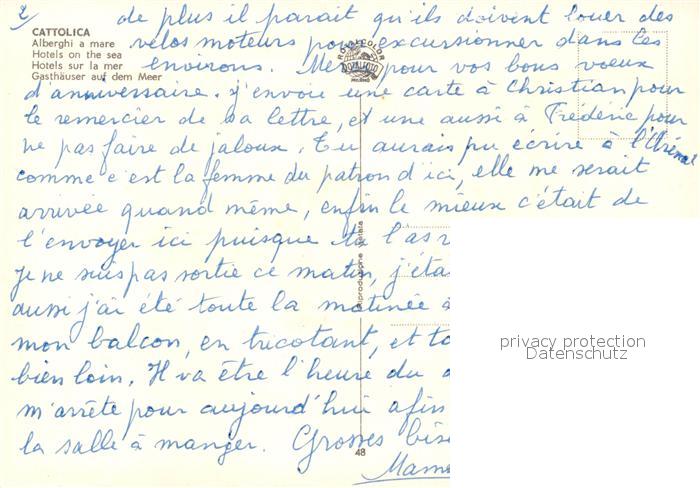 2/ de plus il parait qu'ils doivent louer des
CATTOLICA
Alberghi a mare
Hotels on the sea
Hotels sur la mer
Gasthäuser auf dem Meer
vélos moteurs pour excursionner dans les
environs. Merci pour vos bons voeux
d'anniversaire. j'envoie une carte à Christian pour
le remercier de sa lettre, et une aussi à Frédéric pour
ne pas faire de jaloux. Tu aurais pu écrire à l'
comme c'est la femme du patron d'ici, elle me serait
arrivée quand même, enfin le mieux c'était de
l'envoyer ici puisque tu l'as
je ne suis pas sortie ce matin, j'éta
aussi j'ai été toute la matinée
mon balcon, en tricotant, et
bien loin. Il va être l'heure du
m'arrête pour aujourd'hui afin
la salle à manger. Grosses bis
Mam
48
Riproduzione vietata
ROTALCOLOR
privacy protection
Datenschutz